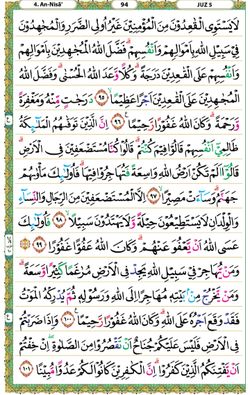 4. An-Nisā' 94 JUZ 5
لَا يَسْتَوِى الْقٰعِدُوْنَ مِنَ الْمُؤْمِنِيْنَ غَيْرُ اُولِى الضَّرَرِ وَالْمُجٰهِدُوْنَ
فِيْ سَبِيْلِ اللّٰهِ بِاَمْوَالِهِمْ وَاَنْفُسِهِمْ فَضَّلَ اللّٰهُ الْمُجٰهِدِيْنَ بِاَمْوَالِهِمْ
وَاَنْفُسِهِمْ عَلَى الْقٰعِدِيْنَ دَرَجَةً وَكُلًّا وَّعَدَ اللّٰهُ الْحُسْنٰى وَفَضَّلَ اللّٰهُ
الْمُجٰهِدِيْنَ عَلَى الْقٰعِدِيْنَ اَجْرًا عَظِيْمًا ٩٥ دَرَجٰتٍ مِّنْهُ وَمَغْفِرَةً
وَّرَحْمَةً وَكَانَ اللّٰهُ غَفُوْرًا رَّحِيْمًا ٩٦ اِنَّ الَّذِيْنَ تَوَفّٰىهُمُ الْمَلٰۤىِٕكَةُ
ظَالِمِيْٓ اَنْفُسِهِمْ قَالُوْا فِيْمَ كُنْتُمْ قَالُوْا كُنَّا مُسْتَضْعَفِيْنَ فِى الْاَرْضِ
قَالُوْٓا اَلَمْ تَكُنْ اَرْضُ اللّٰهِ وَاسِعَةً فَتُهَاجِرُوْا فِيْهَا فَاُولٰۤىِٕكَ مَأْوٰىهُمْ
جَهَنَّمُ وَسَاۤءَتْ مَصِيْرًا ٩٧ اِلَّا الْمُسْتَضْعَفِيْنَ مِنَ الرِّجَالِ وَالنِّسَاۤءِ
وَالْوِلْدَانِ لَا يَسْتَطِيْعُوْنَ حِيْلَةً وَّلَا يَهْتَدُوْنَ سَبِيْلًا ٩٨ فَاُولٰۤىِٕكَ
عَسَى اللّٰهُ اَنْ يَّعْفُوَ عَنْهُمْ وَكَانَ اللّٰهُ عَفُوًّا غَفُوْرًا ٩٩
وَمَنْ يُّهَاجِرْ فِيْ سَبِيْلِ اللّٰهِ يَجِدْ فِى الْاَرْضِ مُرٰغَمًا كَثِيْرًا وَّسَعَةً
وَمَنْ يَّخْرُجْ مِنْۢ بَيْتِهٖ مُهَاجِرًا اِلَى اللّٰهِ وَرَسُوْلِهٖ ثُمَّ يُدْرِكْهُ الْمَوْتُ
فَقَدْ وَقَعَ اَجْرُهٗ عَلَى اللّٰهِ وَكَانَ اللّٰهُ غَفُوْرًا رَّحِيْمًا ١٠٠ وَاِذَا ضَرَبْتُمْ
فِى الْاَرْضِ فَلَيْسَ عَلَيْكُمْ جُنَاحٌ اَنْ تَقْصُرُوْا مِنَ الصَّلٰوةِ اِنْ خِفْتُمْ
اَنْ يَّفْتِنَكُمُ الَّذِيْنَ كَفَرُوْا اِنَّ الْكٰفِرِيْنَ كَانُوْا لَكُمْ عَدُوًّا مُّبِيْنًا ١٠١